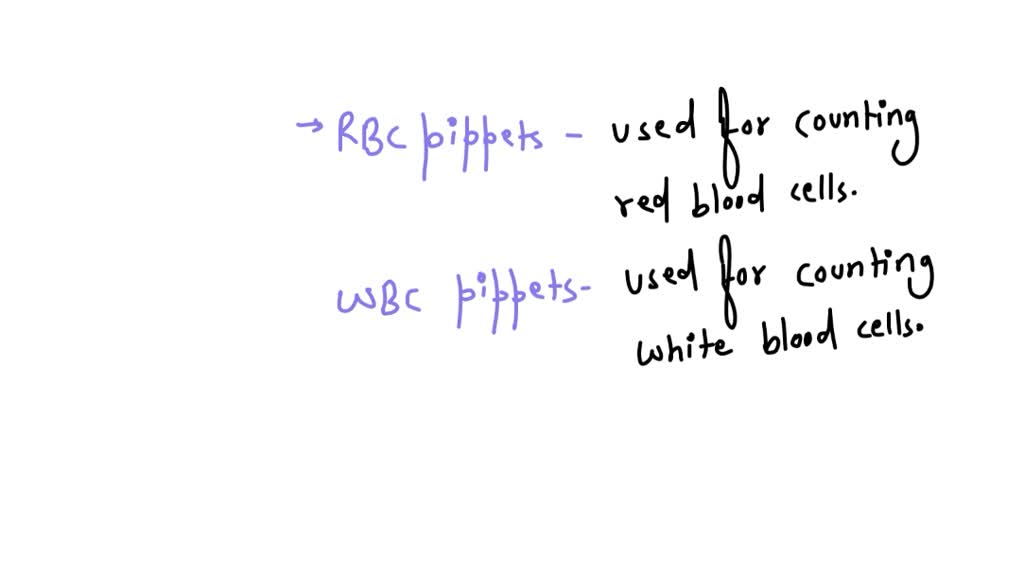 → RBC pippets - used for counting
red blood cells.
WBC pippets- used for counting
white blood cells.